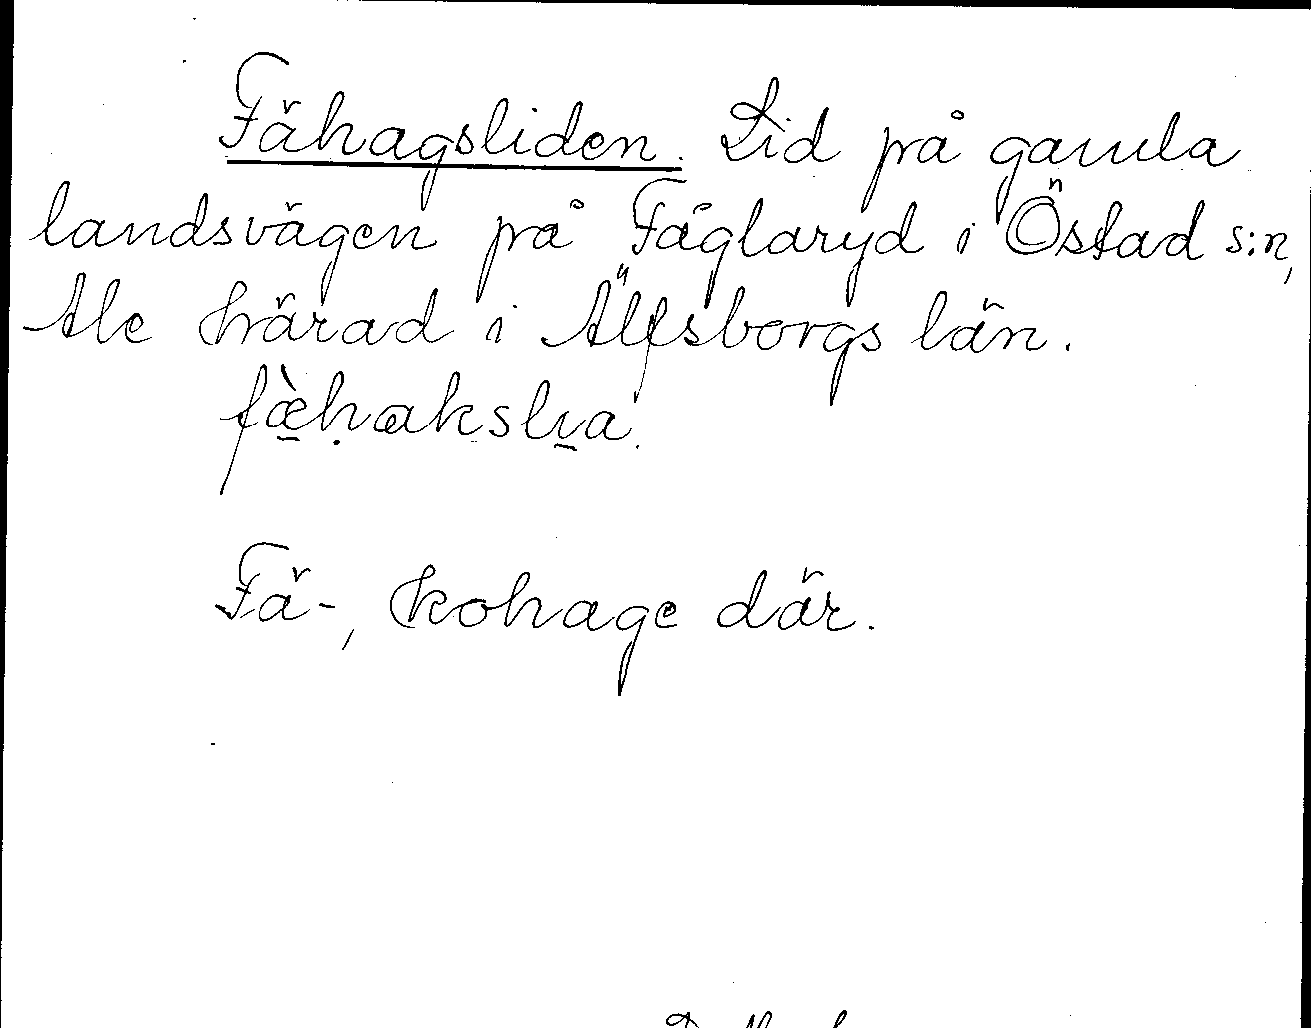 Fähagsliden. Lid på gamla
landsvägen på Fåglaryd i Östad s:n,
Ale härad i Älfsborgs län.
fæ̀hakslia.
Fä-, kohage där.